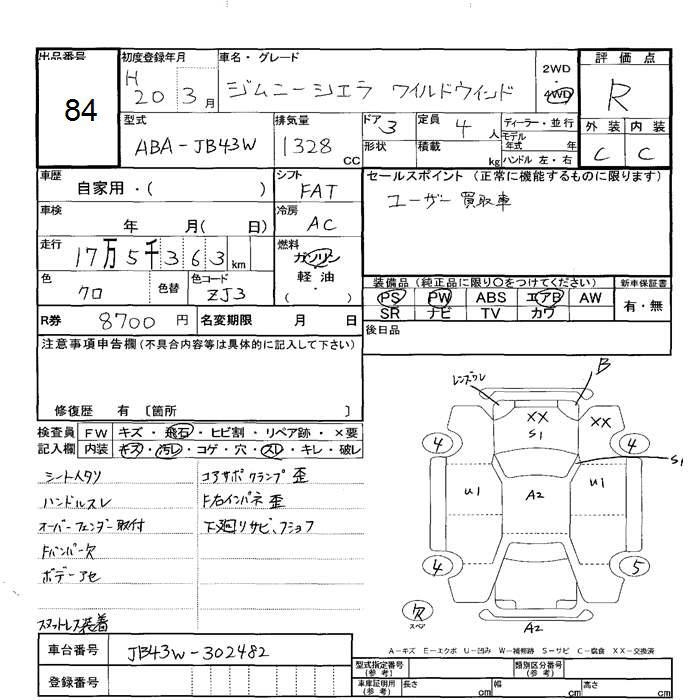 出品番号
84
初度登録年月
H 20 3月
車名・グレード
ジムニーシエラ ワイルドウインド
2WD
4WD
評価点
R
外装 内装
C C
型式
ABA-JB43W
排気量
1328 CC
ドア 3
形状
定員 4 人
積載 kg
ディーラー・並行
モデル年式 年
ハンドル 左・右
車歴
自家用・( )
シフト
FAT
セールスポイント (正常に機能するものに限ります)
ユーザー買取車
車検
年 月( 日)
冷房
AC
走行
17万5千363 km
燃料
ガソリン
軽油
・( )
色
クロ
色替
色コード
ZJ3
装備品 (純正品に限り○をつけてください)
新車保証書
PS PW ABS エアB AW
有・無
SR ナビ TV カワ
R券 8700 円
名変期限 月 日
後日品
注意事項申告欄(不具合内容等は具体的に記入して下さい)
修復歴 有 〔箇所 〕
検査員記入欄
FW キズ・飛石・ヒビ割・リペア跡・×要
内装 キズ・汚レ・コゲ・穴・スレ・キレ・破レ
シート人タリ
ハンドルスレ
オーバーフェンダー取付
Fバンパー欠
ボデーアセ
スタットレス装着
コアサポクランプ歪
F右インパネ歪
下廻りサビ、フショク
レンズワレ
B
XX
S1
XX
4
4
S1
U1
A2
U1
4
5
欠
スペア
A2
A-キズ E-エクボ U-凹み W-補修跡 S-サビ C-腐食 XX-交換済
車台番号
JB43W-302482
登録番号
型式指定番号
(参考)
類別区分番号
(参考)
車庫証明用
(参考)
長さ cm
幅 cm
高さ cm